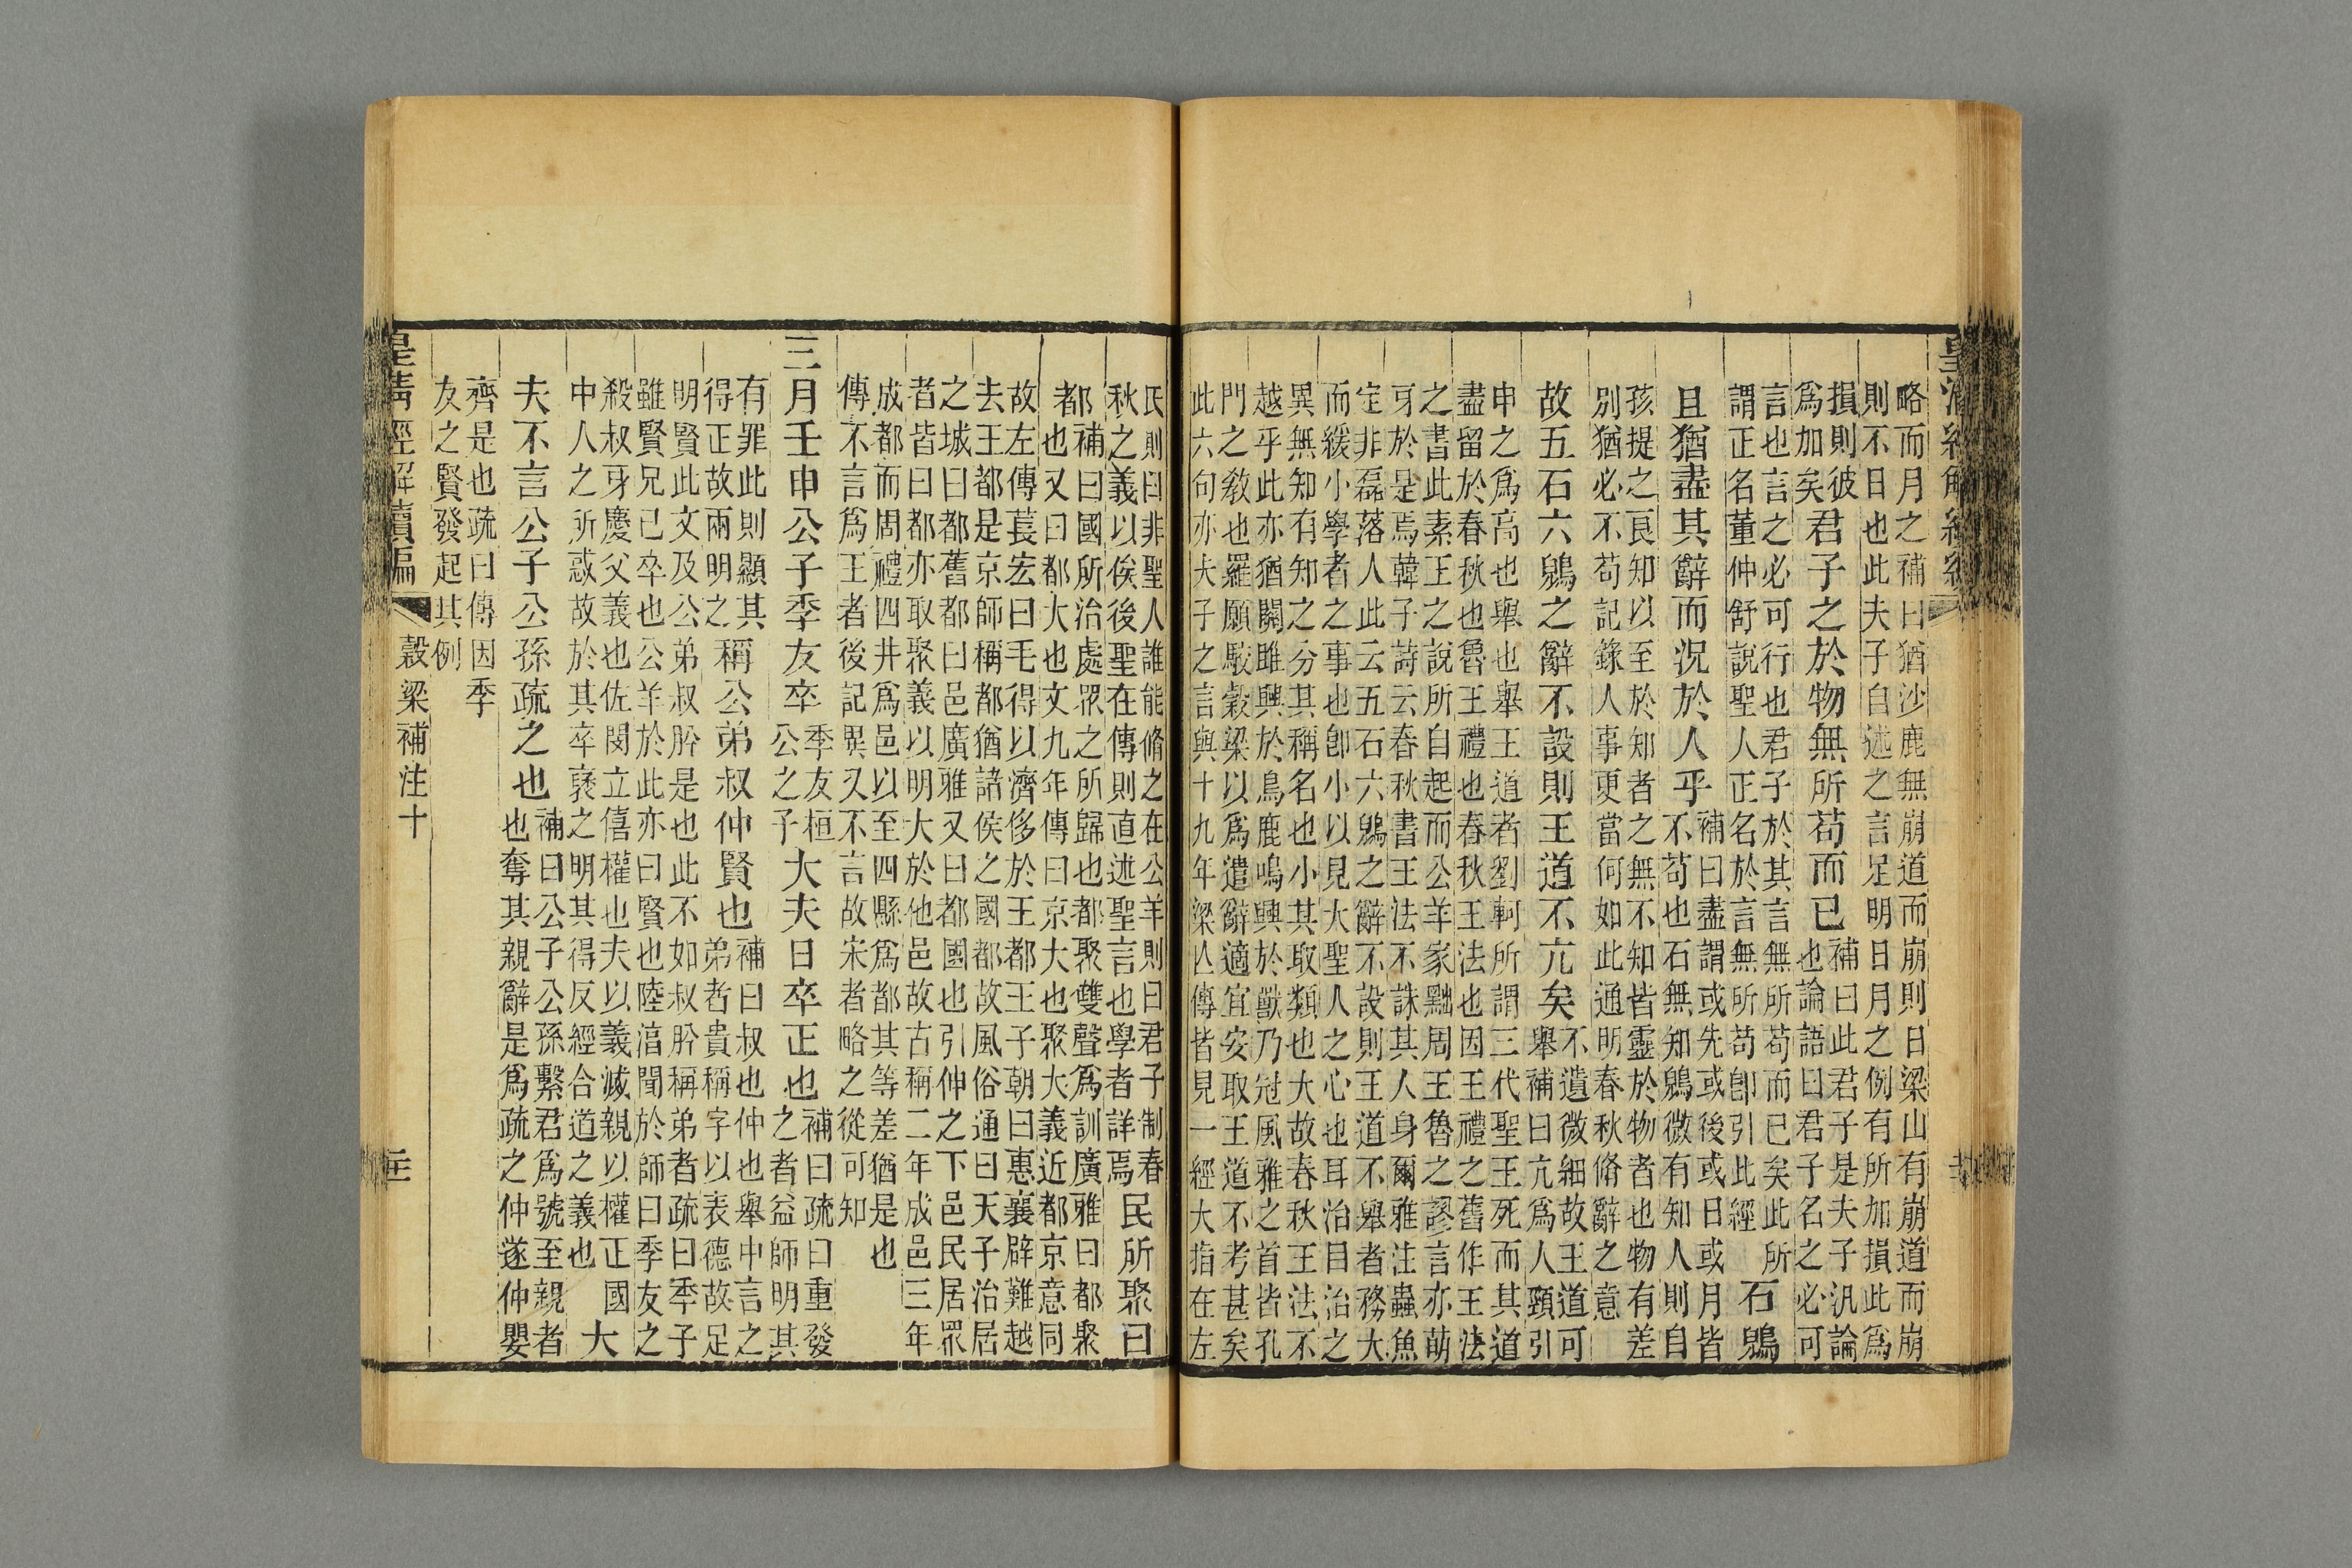 皇清經解續編
略而月之補曰猶沙鹿無崩道而崩則日梁山有崩道而崩
則不日也此夫子自述之言足明日月之例有所加損此爲
損則彼
爲加矣
君子之於物無所苟而已
補曰此君子是夫子汎論
也論語曰君子名之必可
言也言之必可行也君子於其言無所苟而已矣此所
謂正名董仲舒說聖人正名於言無所苟卽引此經
石鶂
且猶盡其辭而況於人乎
補曰盡謂或先或後或日或月皆
不苟也石無知鶂微有知人則自
孩提之良知以至於知者之無不知皆靈於物者也物有差
別猶必不苟記錄人事更當何如此通明春秋脩辭之意
故五石六鶂之辭不設則王道不亢矣
不遺微細故王道可
舉補曰亢爲人頸引
申之爲高也舉也舉王道者劉軻所謂三代聖王死而其道
盡留於春秋也魯王禮也春秋王法也因王禮之舊作王法
之書此素王之說所自起而公羊家黜周王魯之謬言亦萌
牙於是焉韓子詩云春秋書王法不誅其人身爾雅注蟲魚
定非磊落人此云五石六鶂之辭不設則王道不舉者務大
而緩小學者之事也卽小以見大聖人之心也耳治目治之
異無知有知之分其稱名也小其取類也大故春秋王法不
越乎此亦猶關雎興於鳥鹿鳴興於獸乃冠風雅之首皆孔
門之敎也羅願駮穀梁以爲遣辭適宜安取王道不考甚矣
此六句亦大子之言與十九年梁亾傳皆見一經大指在左
氏則曰非聖人誰能脩之在公羊則曰君子制春
秋之義以俟後聖在傳則直述聖言也學者詳焉
民所聚曰
都
補曰國所治處眾之所歸也都聚雙聲爲訓廣雅曰都聚
也又曰都大也文九年傳曰京大也聚大義近都京意同
故左傳萇宏曰毛得以濟侈於王都王子朝曰惠襄辟難越
去王都是京師稱都猶諸侯之國都故風俗通曰天子治居
之城曰都舊都曰邑廣雅又曰都國也引伸之下邑民居眾
者皆曰都亦取聚義以明大於他邑故古稱二年成邑三年
成都而周禮四井爲邑以至四縣爲都其等差猶是也
傳不言爲王者後記異又不言故宋者略之從可知
三月壬申公子季友卒
季友桓
公之子
大夫日卒正也
補曰疏曰重發
之者益師明其
有罪此則顯其
得正故兩明之
稱公弟叔仲賢也
補曰叔也仲也舉中言之
弟者貴稱字以表德故足
明賢此文及公弟叔肸是也此不如叔肸稱弟者疏曰季子
雖賢兄已卒也公羊於此亦曰賢也陸淳聞於師曰季友之
殺叔牙慶父義也佐閔立僖權也夫以義滅親以權正國
中人之所惑故於其卒襃之明其得反經合道之義也
大
夫不言公子公孫疏之也
補曰公子公孫繫君爲號至親者
也奪其親辭是爲疏之仲遂仲嬰
齊是也疏曰傳因季
友之賢發起其例
皇清經解續編
穀梁補注十